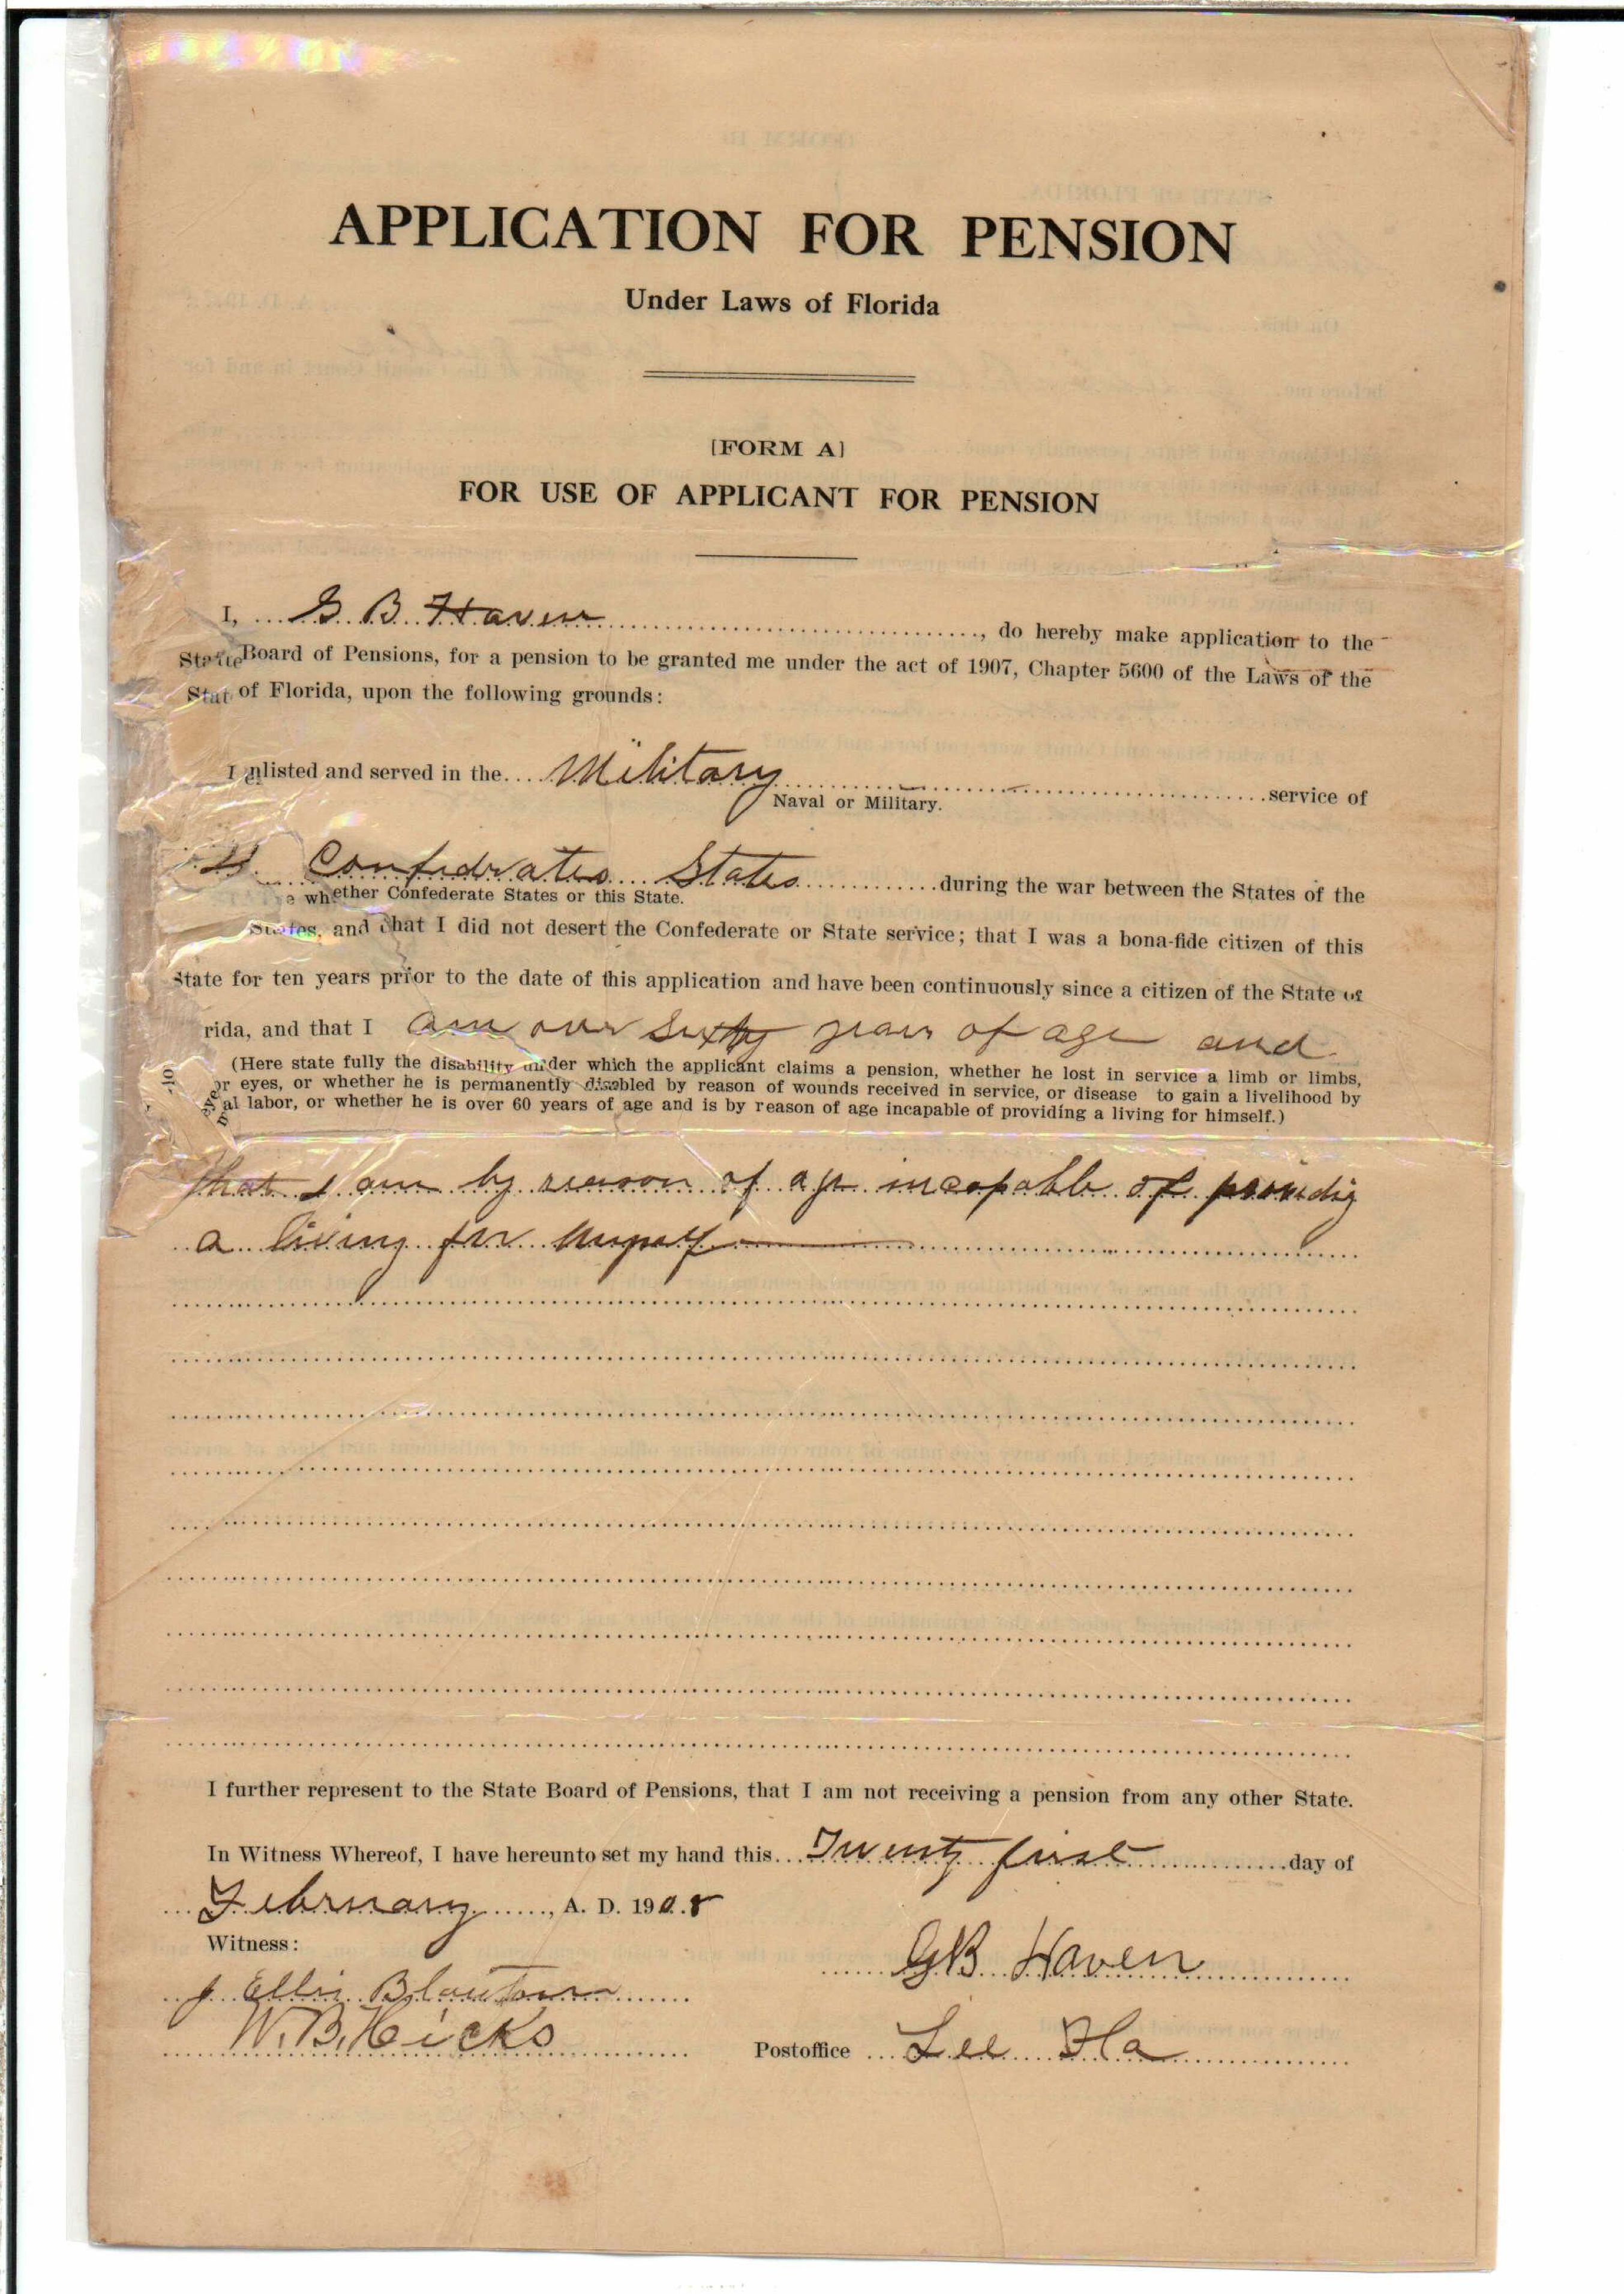 APPLICATION FOR PENSION
Under Laws of Florida
[FORM A]
FOR USE OF APPLICANT FOR PENSION
I, G B Haven, do hereby make application to the
State Board of Pensions, for a pension to be granted me under the act of 1907, Chapter 5600 of the Laws of the
Stat of Florida, upon the following grounds:
I enlisted and served in the Military service of
Naval or Military.
Confedrates States during the war between the States of the
e whether Confederate States or this State.
States, and that I did not desert the Confederate or State service; that I was a bona-fide citizen of this
State for ten years prior to the date of this application and have been continuously since a citizen of the State of
rida, and that I am over sixty years of age and
(Here state fully the disability under which the applicant claims a pension, whether he lost in service a limb or limbs,
eye or eyes, or whether he is permanently disabled by reason of wounds received in service, or disease to gain a livelihood by
al labor, or whether he is over 60 years of age and is by reason of age incapable of providing a living for himself.)
that I am by reason of age incapable of providig
a living for myself
I further represent to the State Board of Pensions, that I am not receiving a pension from any other State.
In Witness Whereof, I have hereunto set my hand this Twenty first day of
February, A. D. 1908
Witness:
GB Haven
J Ellis Blanton
W. B. Hicks
Postoffice Lee Fla